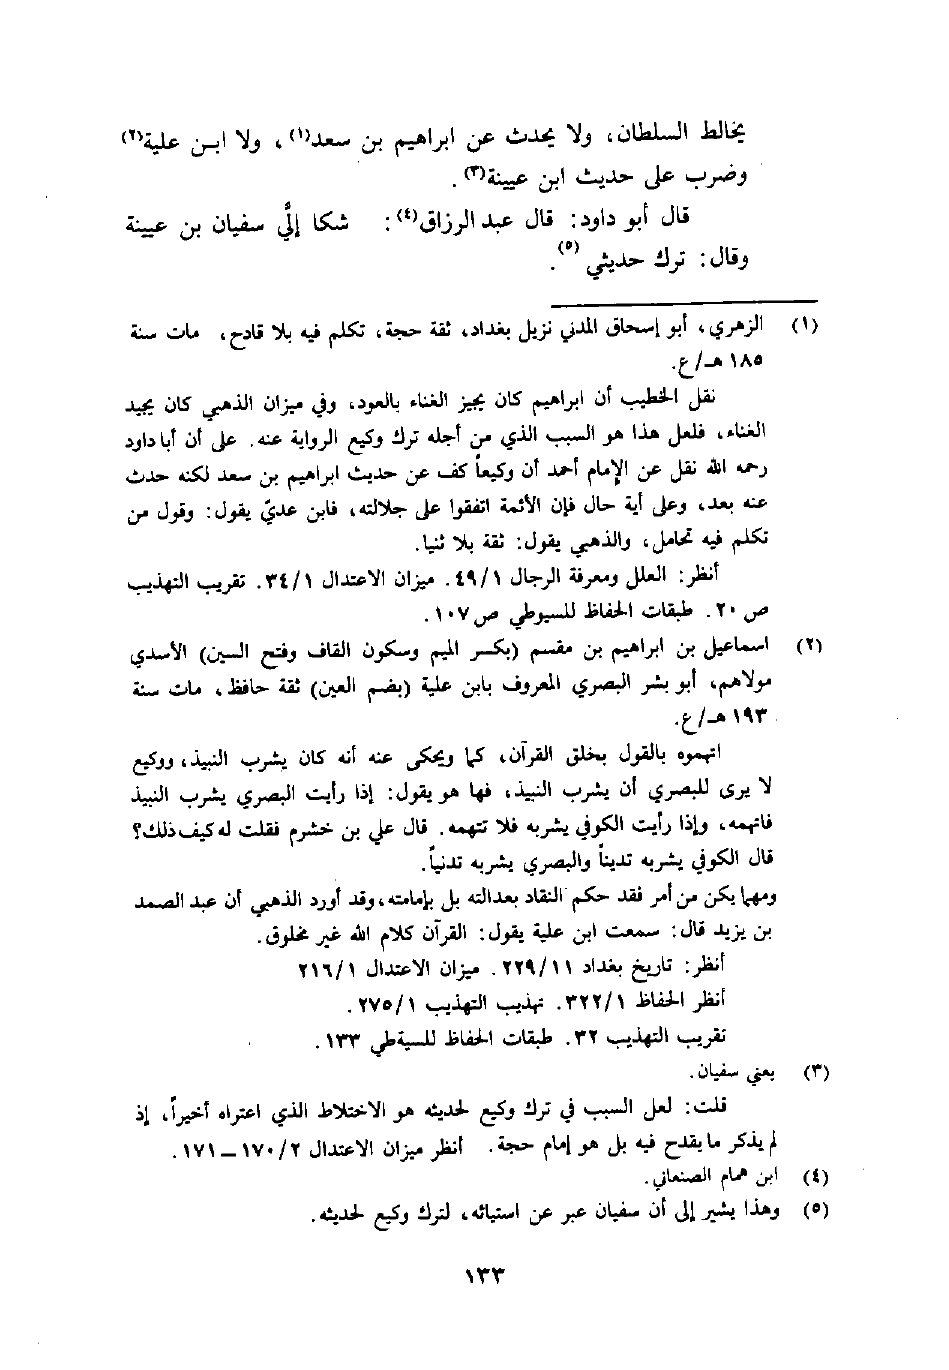 يخالط السلطان، ولا يحدث عن ابراهيم بن سعد(١)، ولا ابـن علية(٢)
وضرب على حديث ابن عيينة(٣).
قال أبو داود: قال عبد الرزاق(٤): شكا إليَّ سفيان بن عيينة
وقال: ترك حديثي(٥).
(١) الزهري، أبو إسحاق المدني نزيل بغداد، ثقة حجة، تكلم فيه بلا قادح، مات سنة
١٨٥ هـ/ع.
نقل الخطيب أن ابراهيم كان يجيز الغناء بالعود، وفي ميزان الذهبي كان يجيد
الغناء، فلعل هذا هو السبب الذي من أجله ترك وكيع الرواية عنه. على أن أبا داود
رحمه الله نقل عن الإمام أحمد أن وكيعاً كف عن حديث ابراهيم بن سعد لكنه حدث
عنه بعد، وعلى أية حال فإن الأئمة اتفقوا على جلالته، فابن عديّ يقول: وقول من
تكلم فيه تحامل، والذهبي يقول: ثقة بلا ثنيا.
أنظر: العلل ومعرفة الرجال ٤٩/١. ميزان الاعتدال ٣٤/١. تقريب التهذيب
ص ٢٠. طبقات الحفاظ للسيوطي ص ١٠٧.
(٢) اسماعيل بن ابراهيم بن مقسم (بكسر الميم وسكون القاف وفتح السين) الأسدي
مولاهم، أبو بشر البصري المعروف بابن علية (بضم العين) ثقة حافظ، مات سنة
١٩٣ هـ/ع.
اتهموه بالقول بخلق القرآن، كما ويحكى عنه أنه كان يشرب النبيذ، ووكيع
لا يرى للبصري أن يشرب النبيذ، فها هو يقول: إذا رأيت البصري يشرب النبيذ
فاتهمه، وإذا رأيت الكوفي يشربه فلا تتهمه. قال علي بن خشرم فقلت له كيف ذلك؟
قال الكوفي يشربه تديناً والبصري يشربه تدنياً.
ومهما يكن من أمر فقد حكم النقاد بعدالته بل بإمامته، وقد أورد الذهبي أن عبد الصمد
بن يزيد قال: سمعت ابن علية يقول: القرآن كلام الله غير مخلوق.
أنظر: تاريخ بغداد ٢٢٩/١١. ميزان الاعتدال ٢١٦/١
أنظر الحفاظ ٣٢٢/١. تهذيب التهذيب ٢٧٥/١.
تقريب التهذيب ٣٢. طبقات الحفاظ للسيةطي ١٣٣.
(٣) يعني سفيان.
قلت: لعل السبب في ترك وكيع لحديثه هو الاختلاط الذي اعتراه أخيراً، إذ
لم يذكر ما يقدح فيه بل هو إمام حجة. أنظر ميزان الاعتدال ١٧٠/٢ ـ ١٧١.
(٤) ابن همام الصنعاني.
(٥) وهذا يشير إلى أن سفيان عبر عن استيائه، لترك وكيع لحديثه.
١٣٣